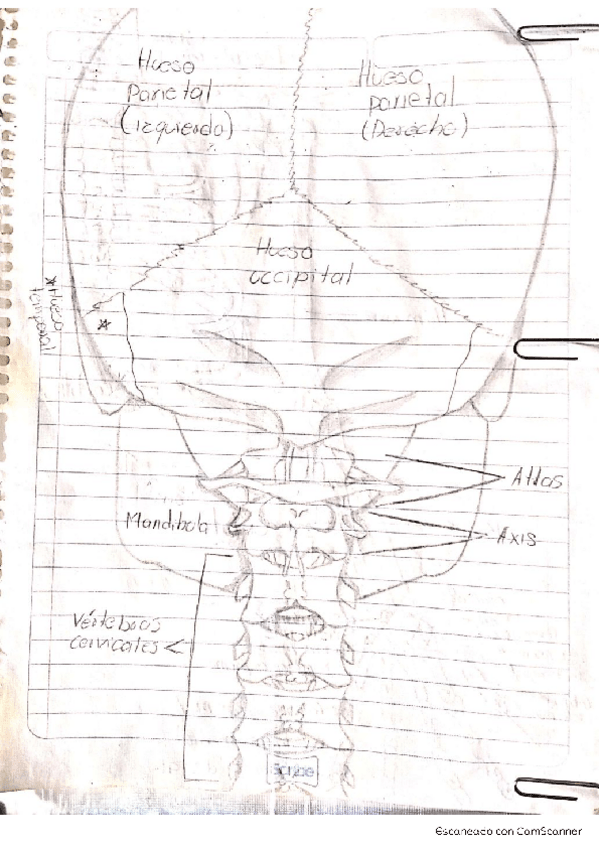 Hueso
parietal
(izquierdo)
Hueso
parietal
(Derecho)
Hueso
occipital
*Hueso
temporal
*
Atlas
Mandibula
Axis
Vértebras
cervicales <
Scribe
Escaneado con CamScanner